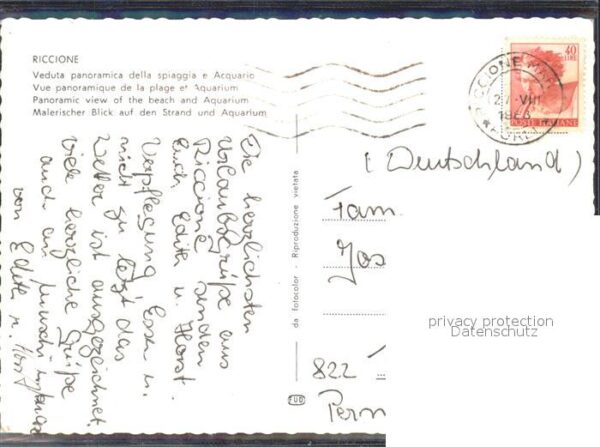 RICCIONE
Veduta panoramica della spiaggia e Acquario
Vue panoramique de la plage et Aquarium
Panoramic view of the beach and Aquarium
Malerischer Blick auf den Strand und Aquarium
Die herzlichsten
Urlaubsgrüße aus
Riccione senden
Euch Edith u. Horst
Verpflegung, Essen u.
nicht zu letzt das
Wetter ist ausgezeichnet.
Viele herzliche Grüße
auch an
von Edith u. Horst
da fotocolor - Riproduzione vietata
40
LIRE
POSTE ITALIANE
RICCIONE
27 VIII
(Deutschland)
Fam.
Jos
822
privacy protection
Datenschutz